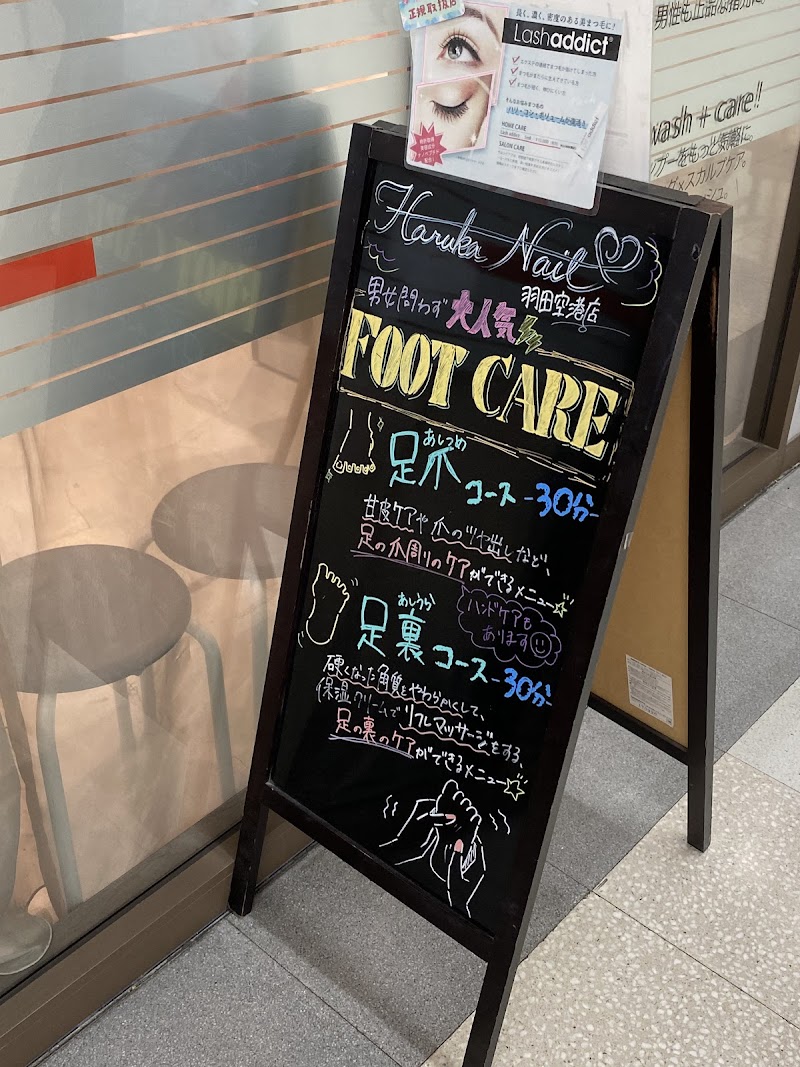 正規取扱店
長く、濃く、密度のある美まつ毛に!
Lashaddict
HOME CARE
SALON CARE
wash + care!!
Haruka Nail
羽田空港店
男女問わず 大人気
FOOT CARE
あしつめ
足爪コース -30分-
甘皮ケアや爪のツヤ出しなど、
足の爪周りのケアができるメニュー
ハンドケアも
あります
あしうら
足裏コース -30分-
硬くなった角質をやわらかくして、
保湿クリームでリフレマッサージをする、
足の裏のケアができるメニュー